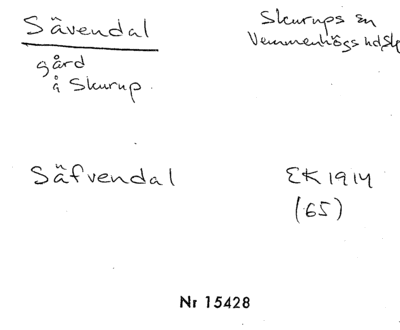 Sävendal
Skurups sn
Vemmenhögs hd, Sk
gård
å Skurup
Säfvendal
EK 1914
(65)
Nr 15428